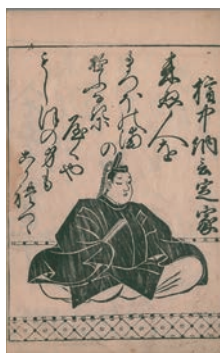 権中納言定家
来ぬ人を
まつほの浦
の
夕なきに
やくや
もしほの身も
こかれつゝ